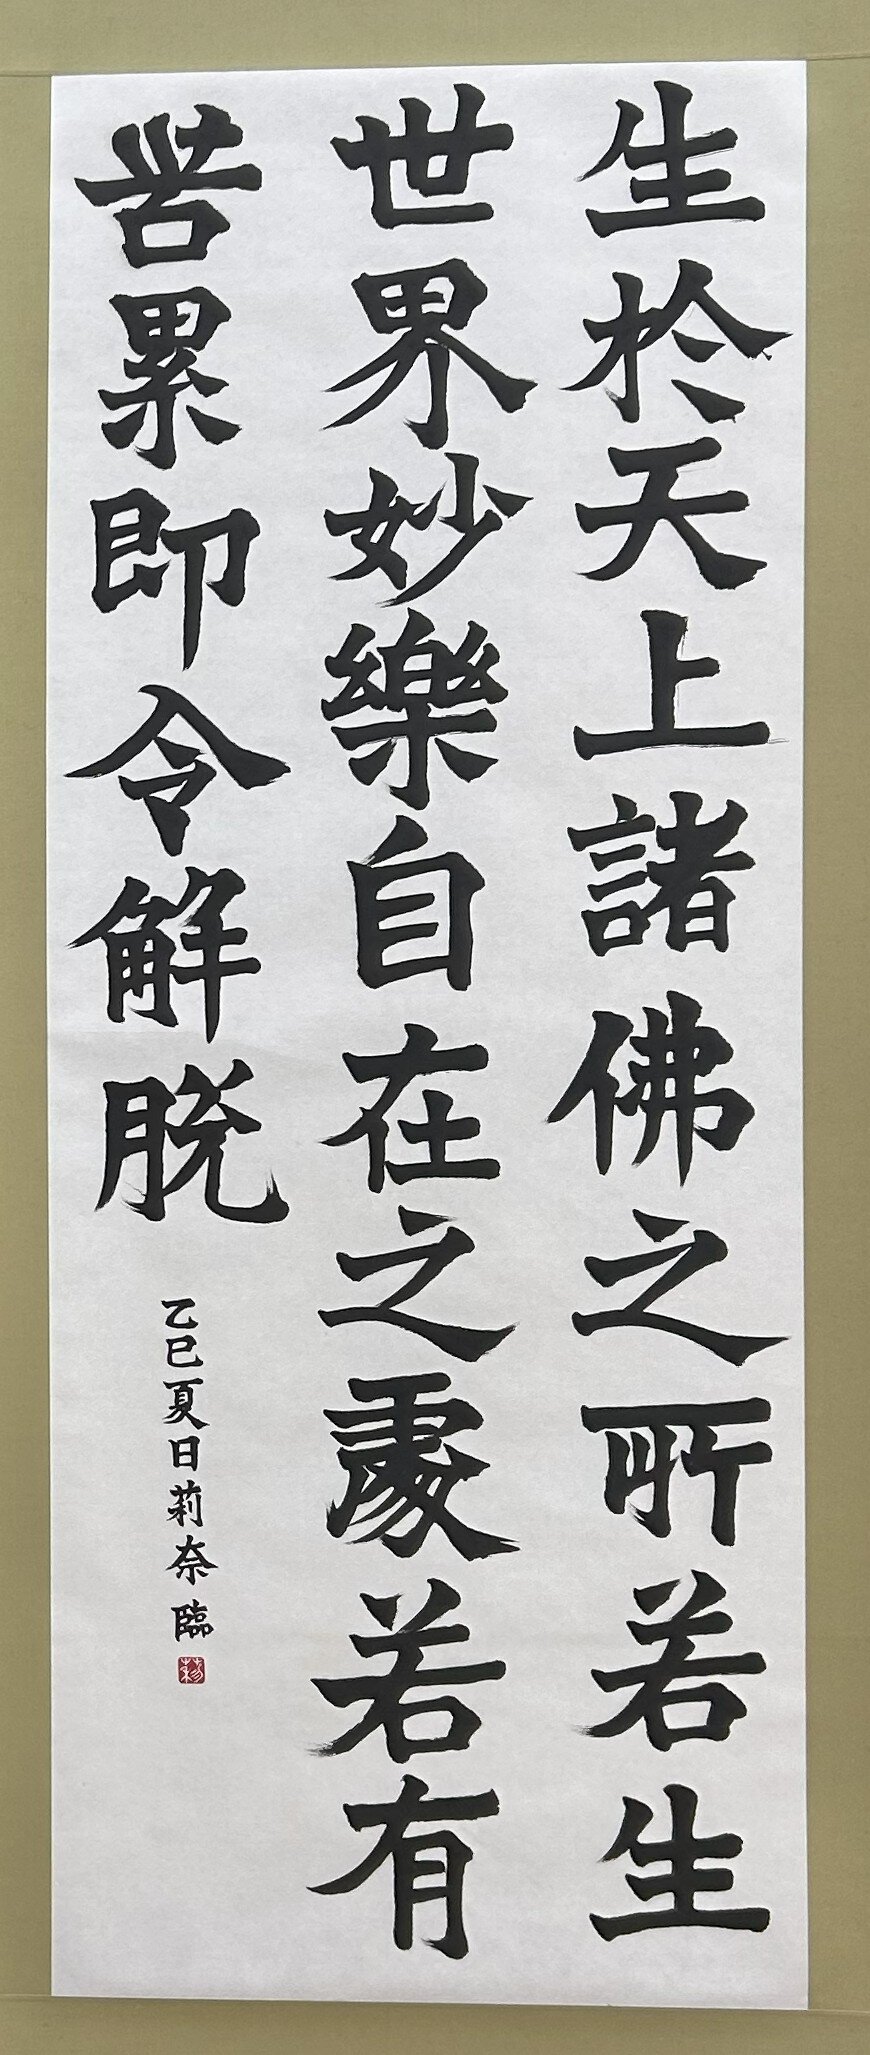 生於天上諸佛之所若生
世界妙樂自在之處若有
苦累即令解脫
乙巳夏日莉奈臨